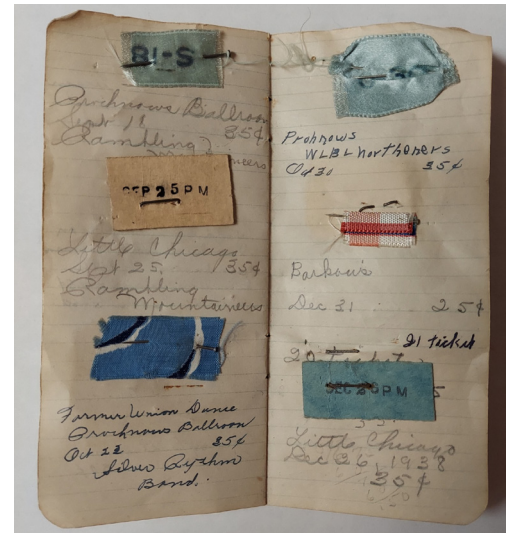 81-S
Procknows Ballroom
Sept 11 35¢
Rambling
Mountaineers
SEP 25 PM
Little Chicago
Sept 25. 35¢
Rambling
Mountaineers
Farmer Union Dance
Procknows Ballroom
Oct 22 35¢
Silver Rythm
Band.
Prohnows
WLBL northeners
Oct 30 35¢
Barbour's
Dec 31 25¢
21 ticket
20 ticket
DEC 26 PM
Little Chicago
Dec 26, 1938
35¢